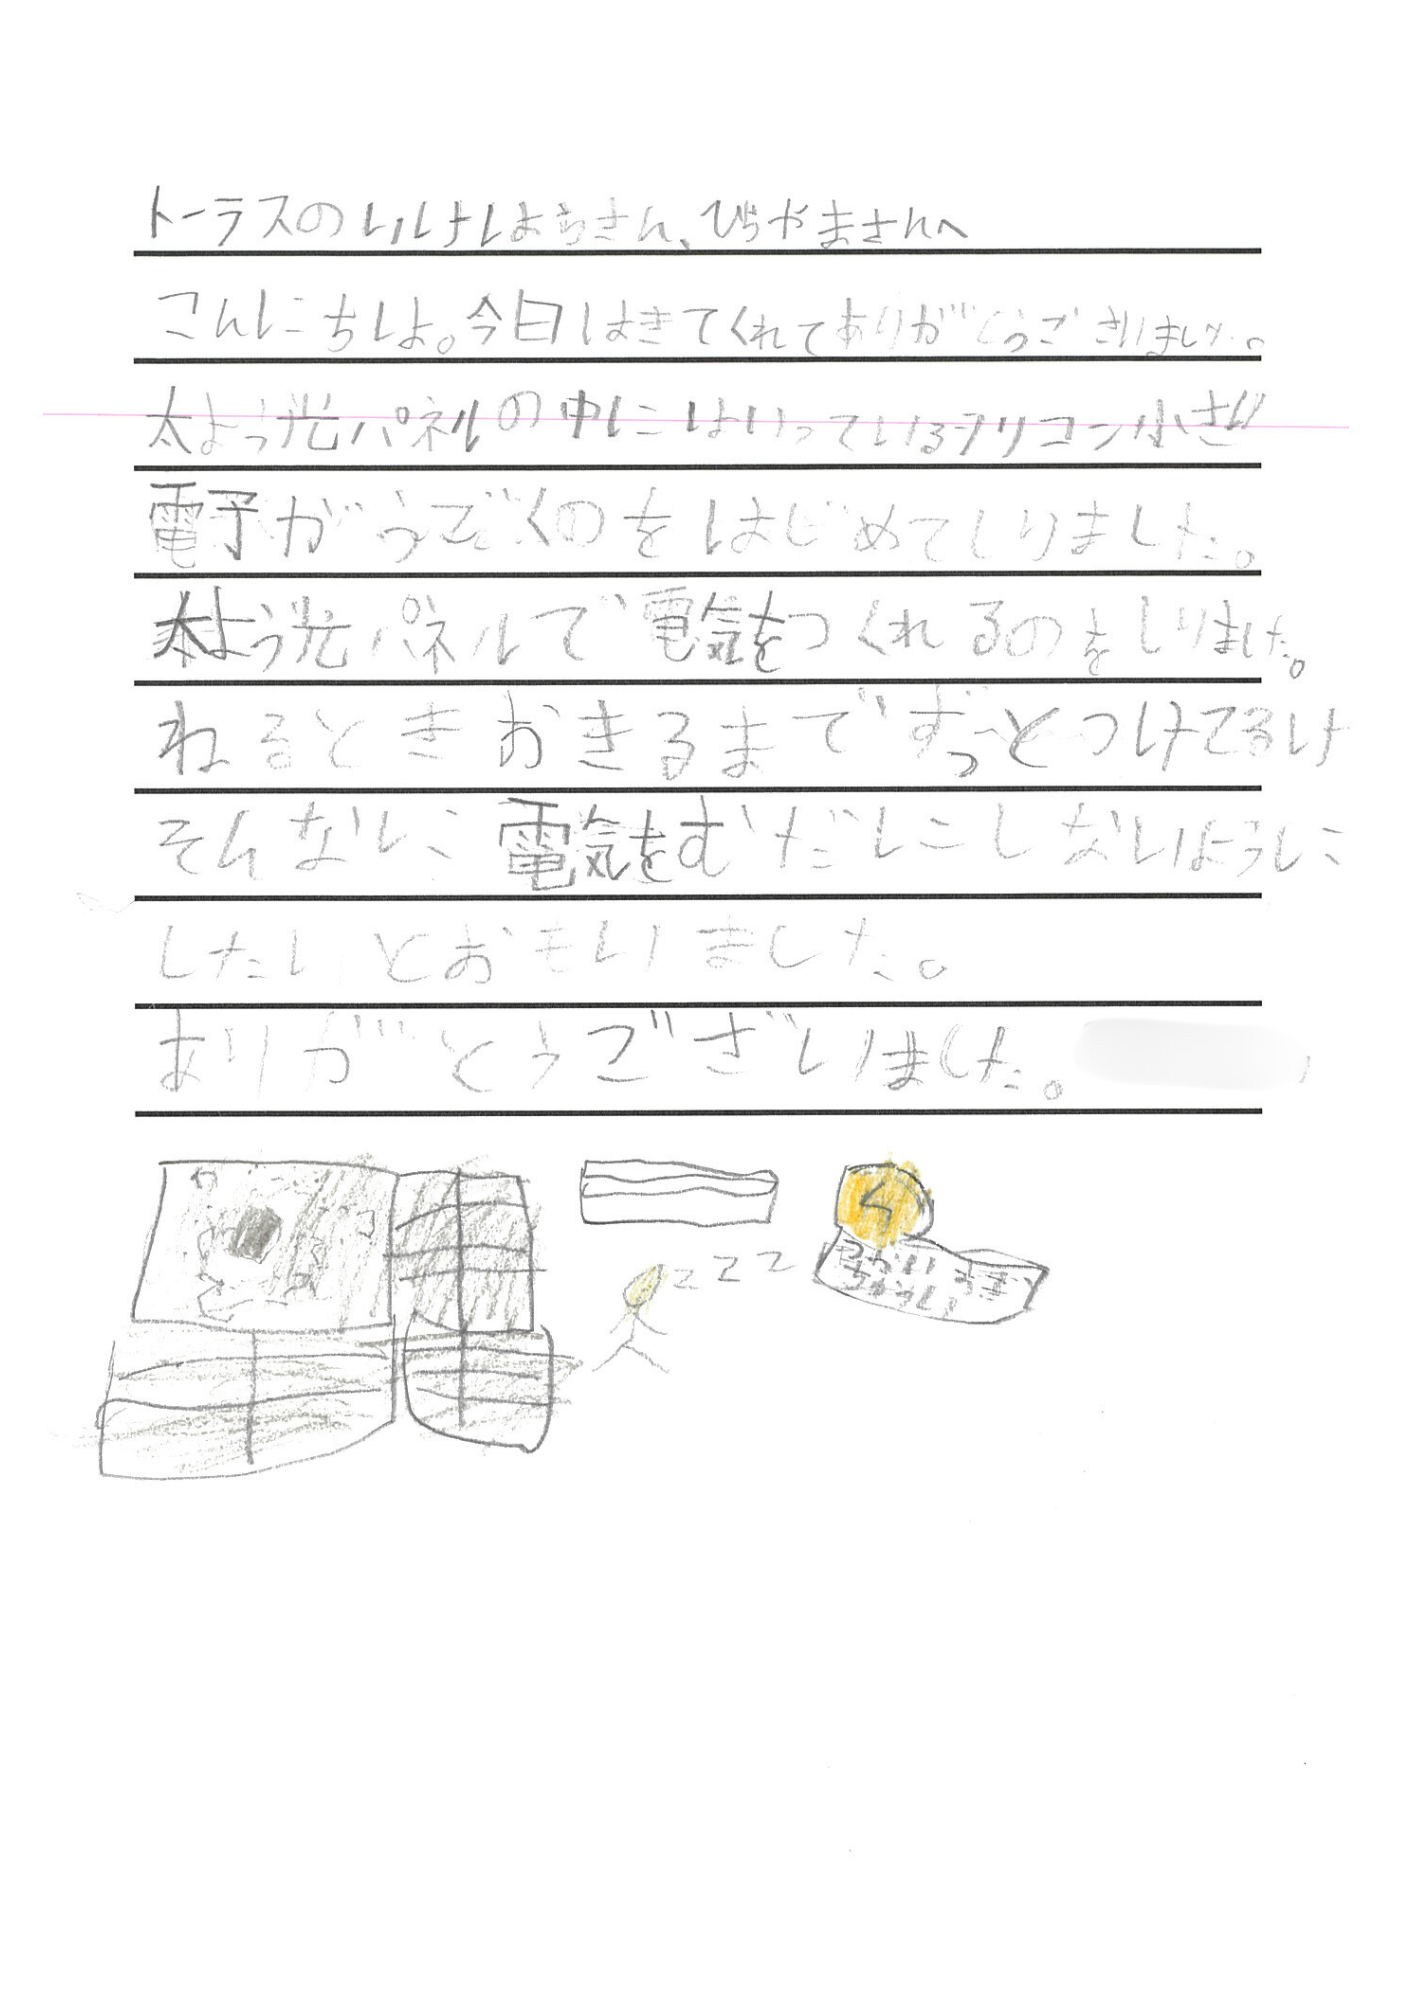 トーラスの しょちょうさん、ひらやまさんへ
こんにちは。今日はきてくれてありがとうございました。
太よう光パネルの中にはいっているシリコン小さい
電子がうごくのをはじめてしりました。
太よう光パネルで電気をつくれるのをしりました。
ねるときおきるまでずっとつけてるけ
そんなに電気をむだにしないように
したいとおもいました。
ありがとうございました。
zzz